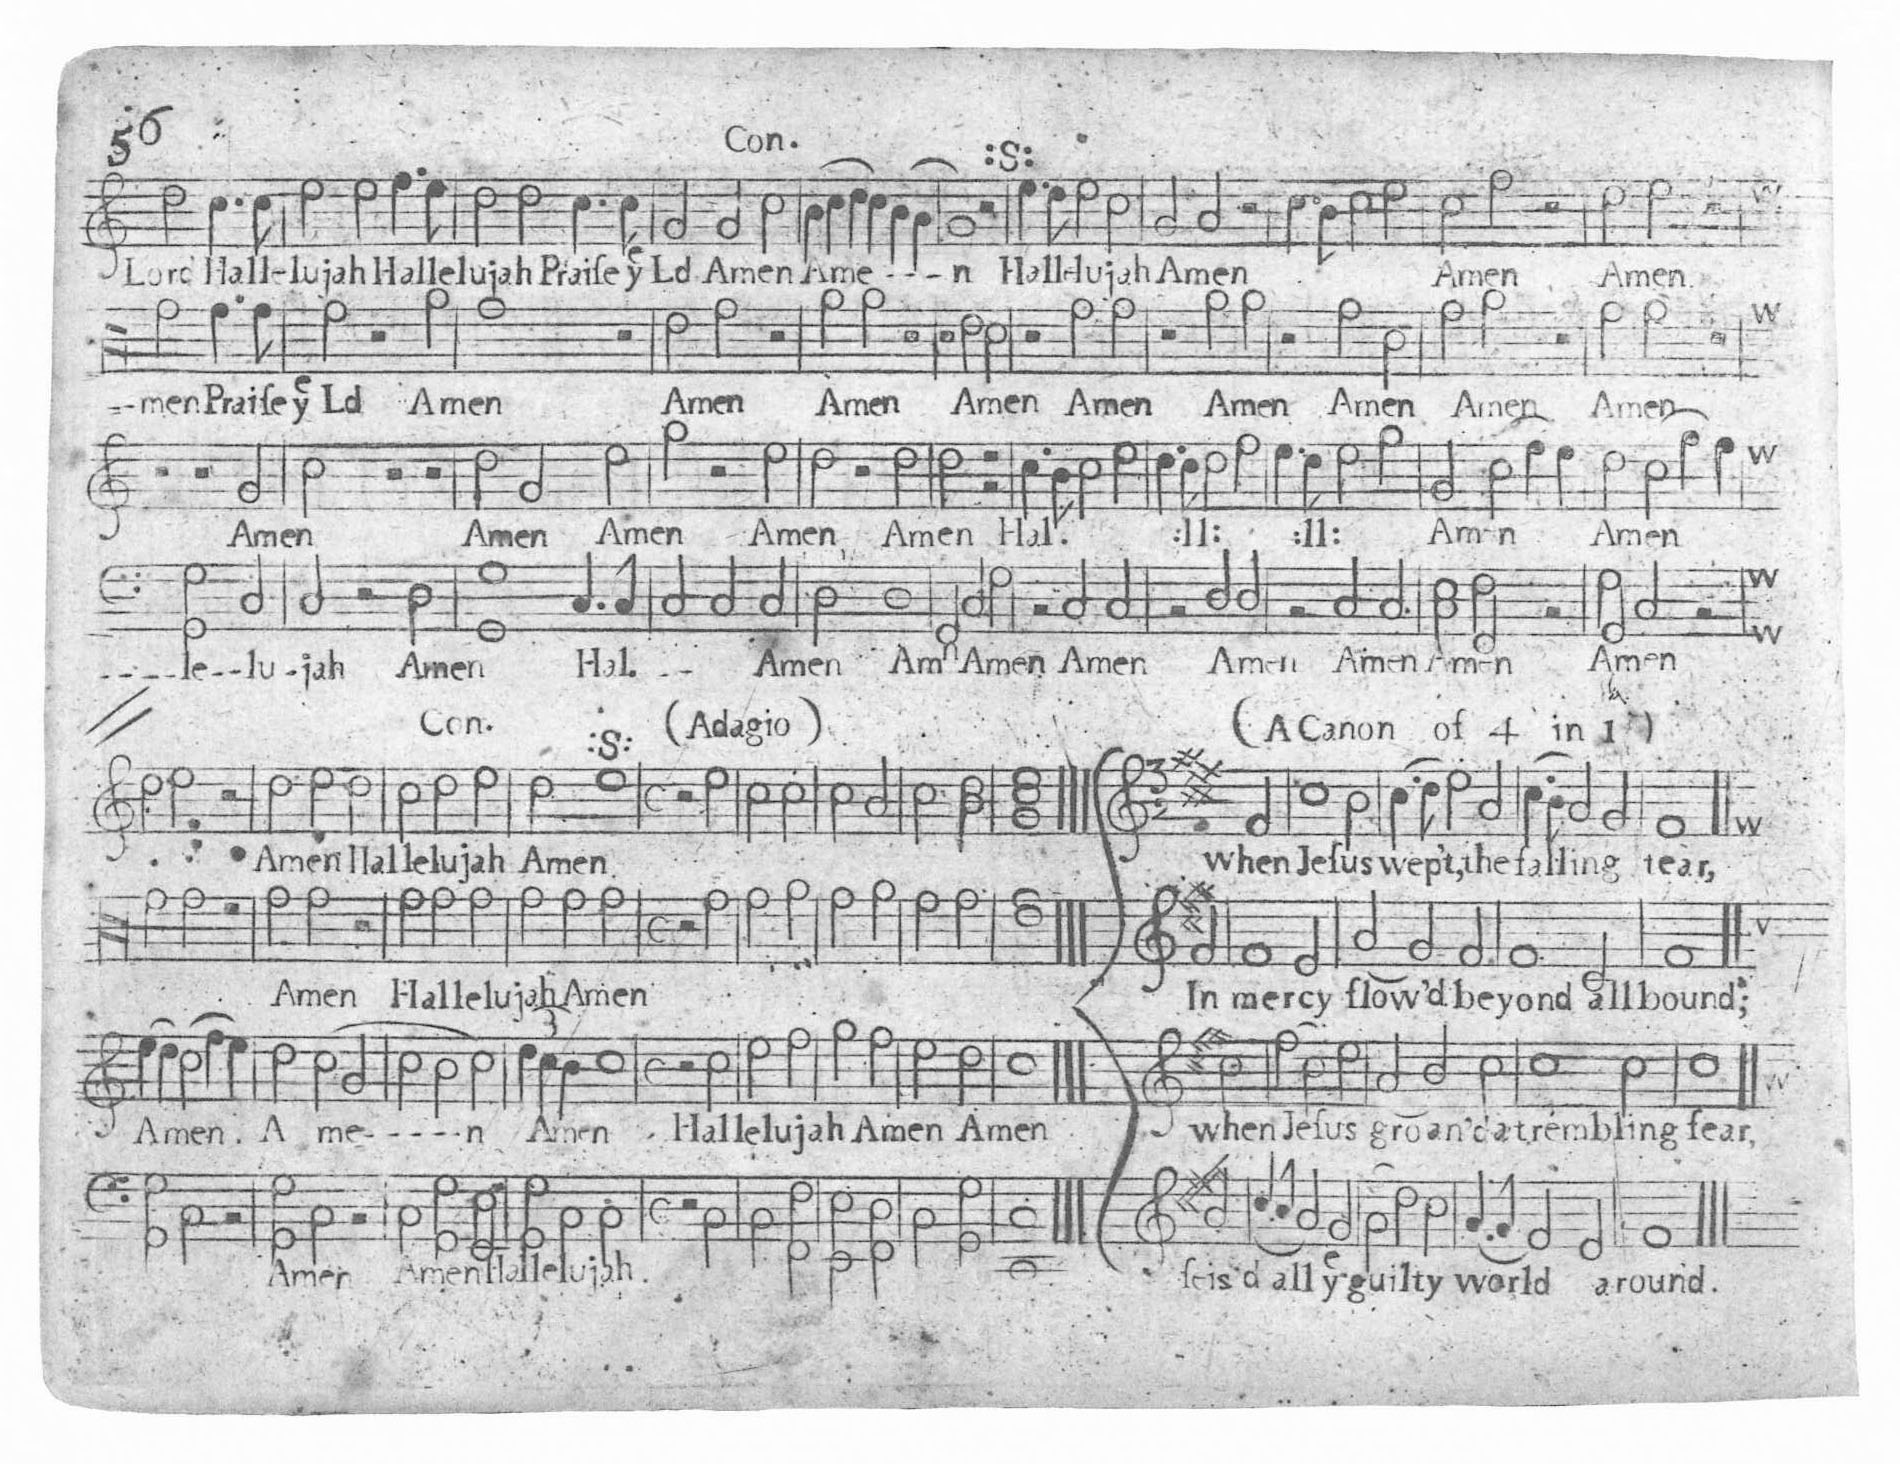 56
Con. :S:
Lord Hall-lujah Hallelujah Praiſe yͤ Ld Amen Ame - - - n Hallelujah Amen Amen Amen.
--men Praiſe yͤ Ld Amen Amen Amen Amen Amen Amen Amen Amen Amen
Amen Amen Amen Amen Amen Hal. :ll: :ll: Amen Amen
- - - - le--lu-jah Amen Hal. - - Amen Amⁿ Amen Amen Amen Amen Amen Amen
Con. :S: (Adagio)
Amen Hallelujah Amen.
Amen Hallelujah Amen
3
Amen. A me- - - - - n Amen Hallelujah Amen Amen
Amen Amen Hallelujah.
(A Canon of 4 in 1)
3
2
when Jeſus wep't, the falling tear,
In mercy flow'd beyond all bound;
when Jeſus groan'd a trembling fear,
ſeis'd all yͤ guilty world around.